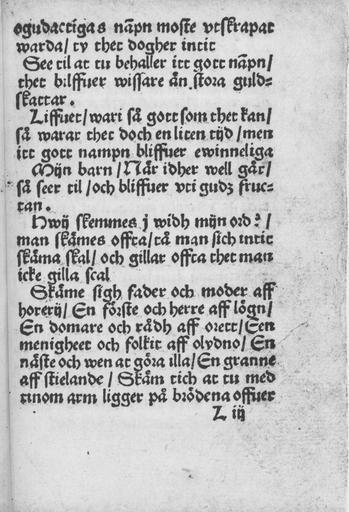 ogudactigas näpn moste vtskrapat
warda/ ty thet dogher intit
See til at tu behaller itt gott näpn/
thet bilffuer wissare än stora guld-
skattar.
Liffuet/wari så gott som thet kan/
så warar thet doch en liten tijd/men
itt gott nampn bliffuer ewinneliga
Mijn barn/När idher well gåt/
så seer til/och bliffuer vti gudz fruc-
tan.
Hwij skemmes j widh mijn ord?/
man skämes offta/tå man sich intit
skäma skal/och gillar offta thet man
icke gilla scal
Skäme sigh fader och moder aff
horerij/ En förste och herre aff lögn/
En domare och rådh aff orett/Een
menigheet och folkit aff olydno/ En
näste och wen at göra illa/En granne
aff stielande/Skäm tich at tu med
tinom arm ligger på brödena offuer
L iij